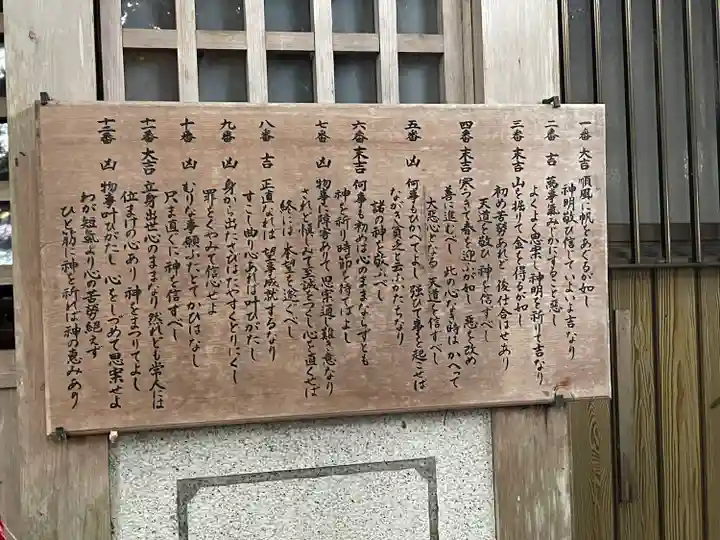 一番 大吉 順風に帆をあぐるが如し
神明敬ひ信じていよいよ吉なり
二番 吉 萬事氣みじかにすること惡し
よくよく思案し神明を祈りて吉なり
三番 末吉 山を掘りて金を得るが如し
初め苦勞あれど後仕合はせあり
天道を敬ひ神を信ずべし
四番 末吉 寒つきて春を迎ふが如し 惡を改め
善に進むべし 此の心なき時はかへって
大惡心となる 天道を信ずべし
五番 凶 何事もひかへてよし 強ひて事を起こせば
ながき貧乏と云ふかたちなり
諸の神を敬ふべし
六番 末吉 何事も初めは心のままならずとも
神を祈りて時節を待てばよし
七番 凶 物事に障害ありて思案通り難き意なり
されど愼しみて至誠をつくし心を直くせば
終には本望を遂ぐべし
八番 吉 正直なれば望事成就するなり
すこし曲り心あれば叶ひがたし
九番 凶 身から出たさびはたやすくとりにくし
罪をくやみて信心せよ
十番 凶 むりな事願ふたとてかひはなし
只ま直ぐに神を信ずべし
十一番 大吉 立身出世心のままなり 然れども常人には
位まけの心あり 神をまつりてよし
十二番 凶 物事叶ひがたし 心をしづめて思案せよ
わが短氣より心の苦勞絶えず
ひと筋に神を祈れば神の惠みあり